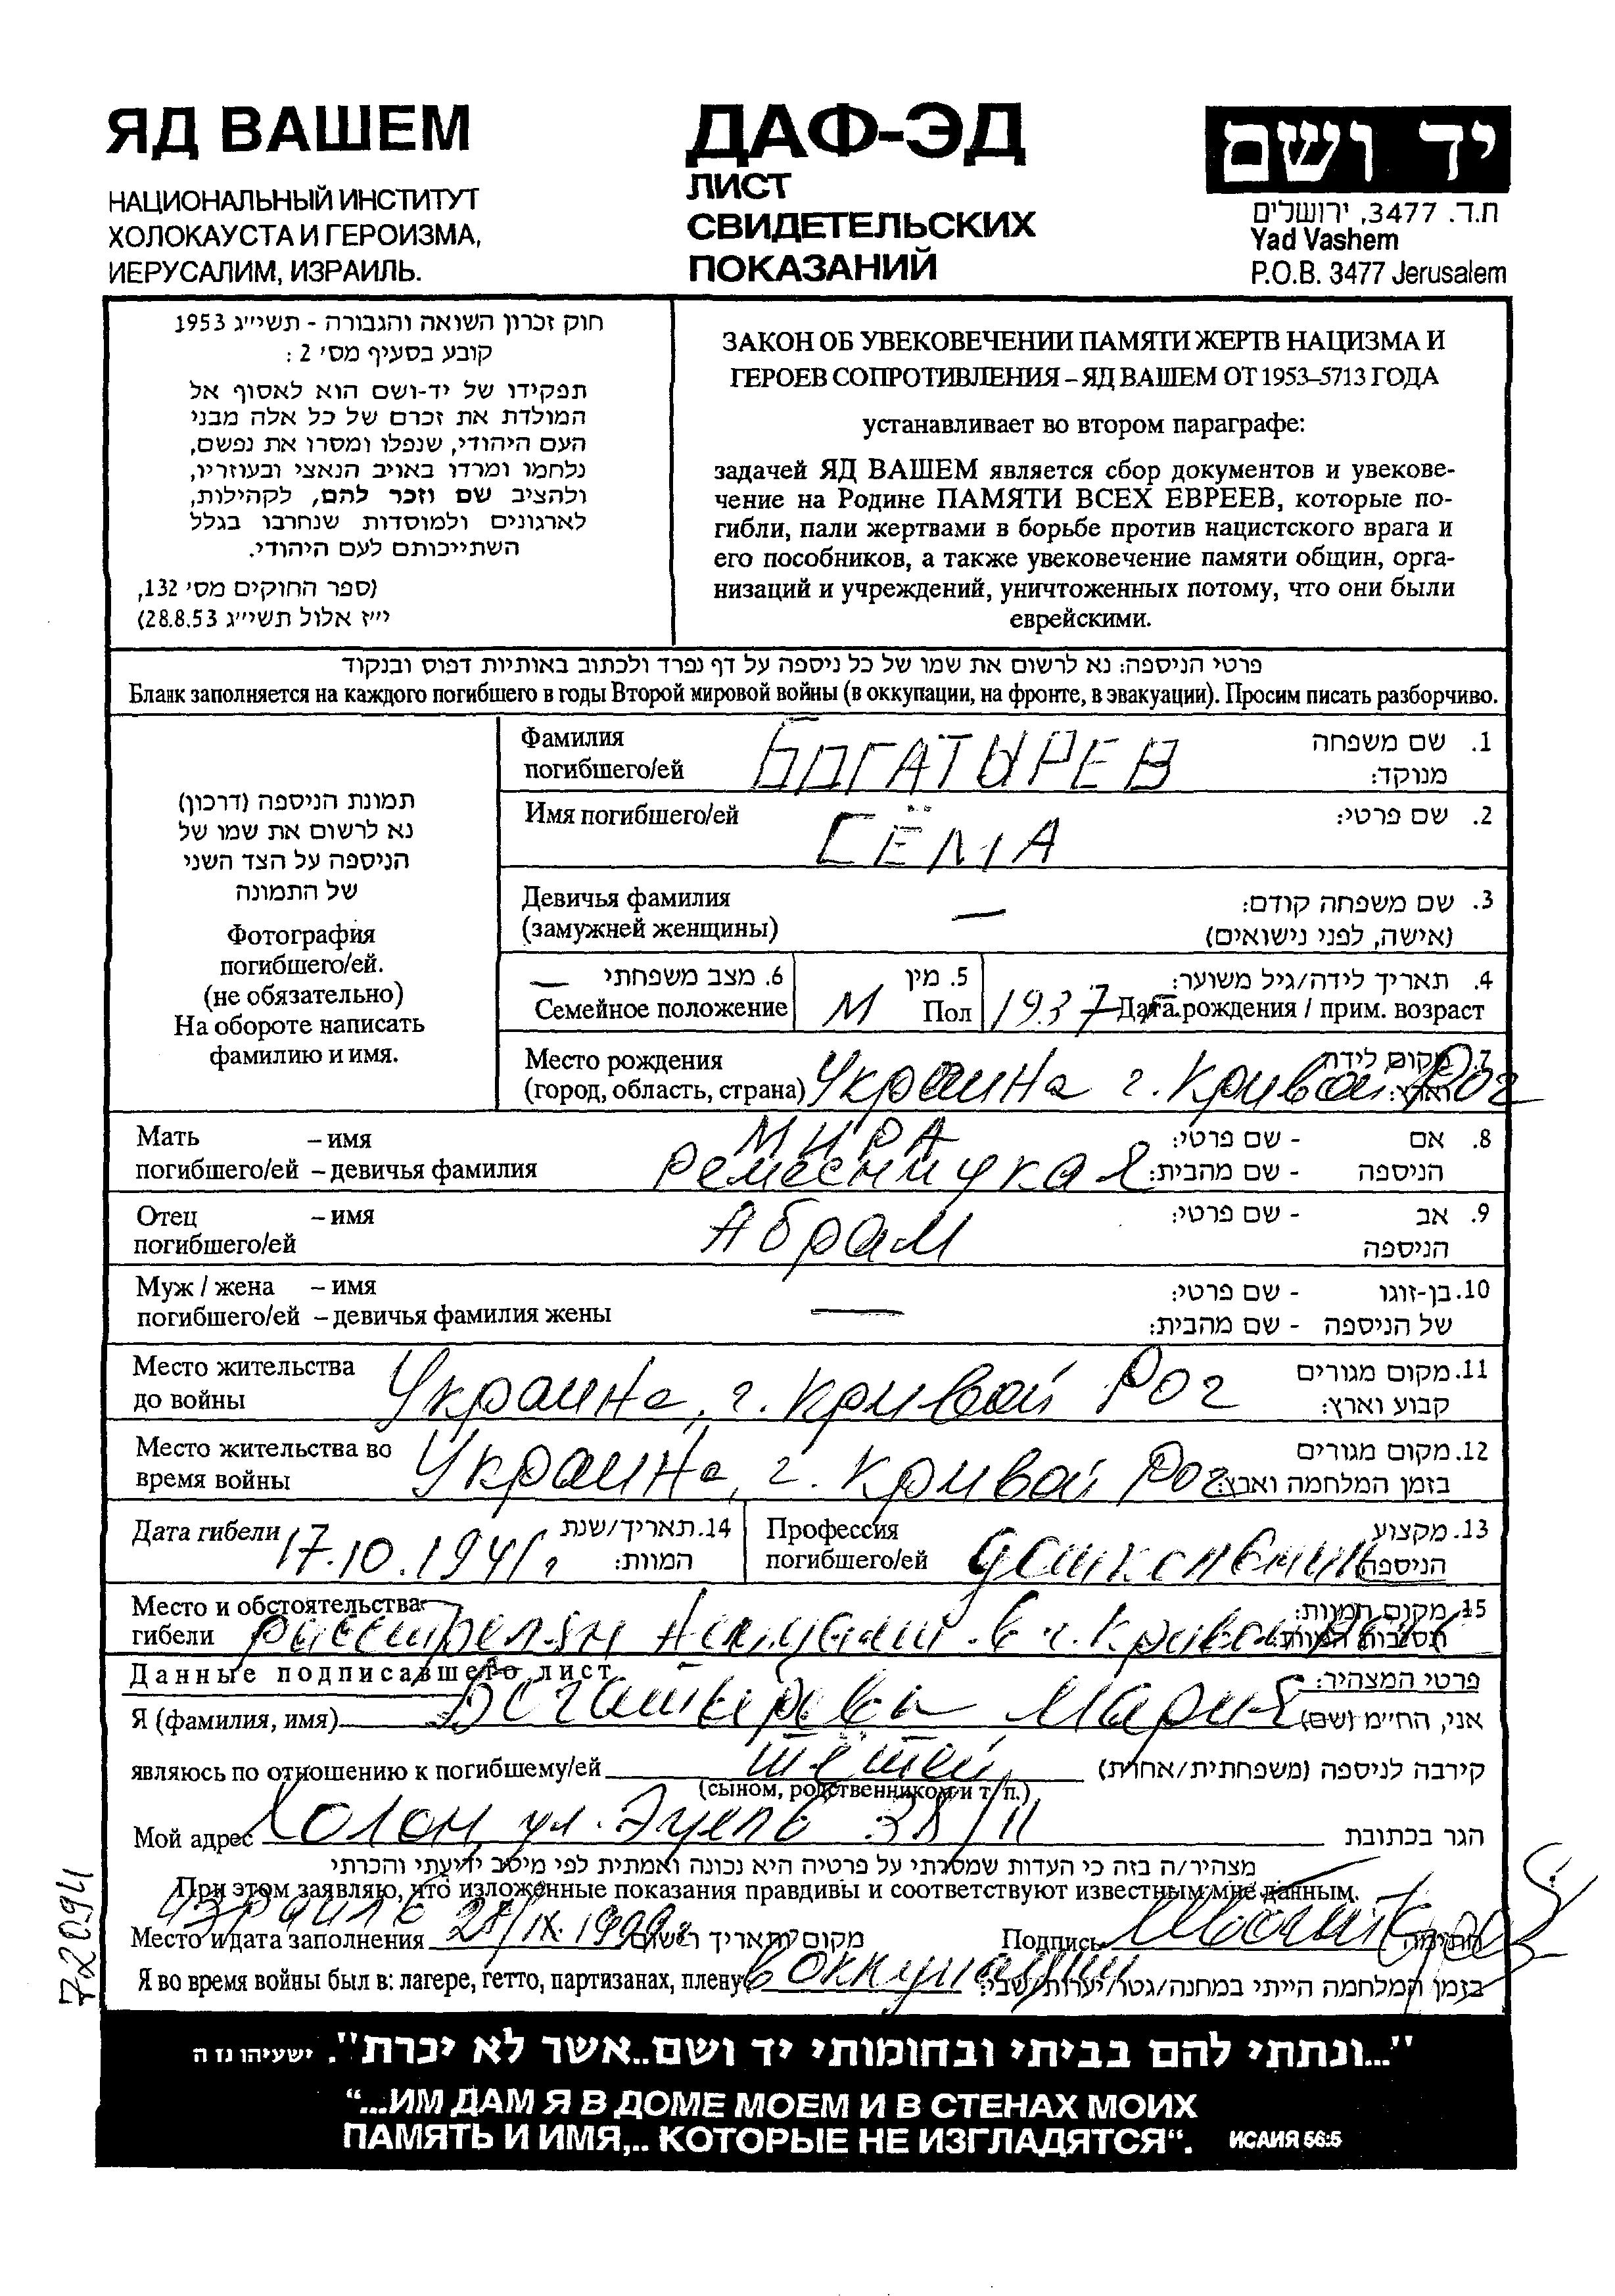 ЯД ВАШЕМ
НАЦИОНАЛЬНЫЙ ИНСТИТУТ
ХОЛОКАУСТА И ГЕРОИЗМА,
ИЕРУСАЛИМ, ИЗРАИЛЬ.
ДАФ-ЭД
ЛИСТ
СВИДЕТЕЛЬСКИХ
ПОКАЗАНИЙ
יד ושם
ת.ד. 3477, ירושלים
Yad Vashem
P.O.B. 3477 Jerusalem
חוק זכרון השואה והגבורה - תשי״ג 1953
קובע בסעיף מס׳ 2 :
תפקידו של יד-ושם הוא לאסוף אל
המולדת את זכרם של כל אלה מבני
העם היהודי, שנפלו ומסרו את נפשם,
נלחמו ומרדו באויב הנאצי ובעוזריו,
ולהציב שם וזכר להם, לקהילות,
לארגונים ולמוסדות שנחרבו בגלל
השתייכותם לעם היהודי.
(ספר החוקים מס׳ 132,
י״ז אלול תשי״ג 28.8.53)
ЗАКОН ОБ УВЕКОВЕЧЕНИИ ПАМЯТИ ЖЕРТВ НАЦИЗМА И
ГЕРОЕВ СОПРОТИВЛЕНИЯ – ЯД ВАШЕМ ОТ 1953–5713 ГОДА
устанавливает во втором параграфе:
задачей ЯД ВАШЕМ является сбор документов и увекове-
чение на Родине ПАМЯТИ ВСЕХ ЕВРЕЕВ, которые по-
гибли, пали жертвами в борьбе против нацистского врага и
его пособников, а также увековечение памяти общин, орга-
низаций и учреждений, уничтоженных потому, что они были
еврейскими.
פרטי הניספה: נא לרשום את שמו של כל ניספה על דף נפרד ולכתוב באותיות דפוס ובנקוד
Бланк заполняется на каждого погибшего в годы Второй мировой войны (в оккупации, на фронте, в эвакуации). Просим писать разборчиво.
תמונת הניספה (דרכון)
נא לרשום את שמו של
הניספה על הצד השני
של התמונה
Фотография
погибшего/ей.
(не обязательно)
На обороте написать
фамилию и имя.
Фамилия БОГАТЫРЕВ 1. שם משפחה
погибшего/ей מנוקד:
Имя погибшего/ей СЁМА 2. שם פרטי:
Девичья фамилия — 3. שם משפחה קודם:
(замужней женщины) (אישה, לפני נישואים)
— 6. מצב משפחתי 5. מין 4. תאריך לידה/גיל משוער:
Семейное положение М Пол 1937 г. Дата рождения / прим. возраст
Место рождения 7. מקום לידה
(город, область, страна) Украина г. Кривой Рог וארץ:
Мать – имя МИРА 8. אם - שם פרטי:
погибшего/ей – девичья фамилия Ремесницкая הניספה - שם מהבית:
Отец – имя Абрам 9. אב - שם פרטי:
погибшего/ей הניספה
Муж / жена – имя 10. בן-זוגו - שם פרטי:
погибшего/ей – девичья фамилия жены — של הניספה - שם מהבית:
Место жительства 11. מקום מגורים
до войны Украина, г. Кривой Рог קבוע וארץ:
Место жительства во 12. מקום מגורים
время войны Украина, г. Кривой Рог בזמן המלחמה וארץ:
Дата гибели 17.10.1941г 14. תאריך/שנת המוות:
Профессия 13. מקצוע
погибшего/ей הניספה
Место и обстоятельства 15. מקום המוות:
гибели расстрелян в г. Кривой Роге
Данные подписавшего лист פרטי המצהיר:
Я (фамилия, имя) Богатырева Мария אני, הח״מ (שם)
являюсь по отношению к погибшему/ей тётей קירבה לניספה (משפחתית/אחרת)
(сыном, родственником и т. п.)
Мой адрес Холон, ул. 38/11 הגר בכתובת
מצהיר/ה בזה כי העדות שמסרתי על פרטיה היא נכונה ואמתית לפי מיטב ידיעתי והכרתי
При этом заявляю, что изложенные показания правдивы и соответствуют известным мне данным.
Израиль
Место и дата заполнения 28/IX. 1999г מקום ותאריך רישום Подпись חתימה
Я во время войны был в: лагере, гетто, партизанах, плену в оккупации בזמן המלחמה הייתי במחנה/גטו/יערות/שבי:
72094
"...ונתתי להם בביתי ובחומותי יד ושם..אשר לא יכרת". ישעיהו נז ה
“...ИМ ДАМ Я В ДОМЕ МОЕМ И В СТЕНАХ МОИХ
ПАМЯТЬ И ИМЯ,.. КОТОРЫЕ НЕ ИЗГЛАДЯТСЯ“. ИСАИЯ 56:5